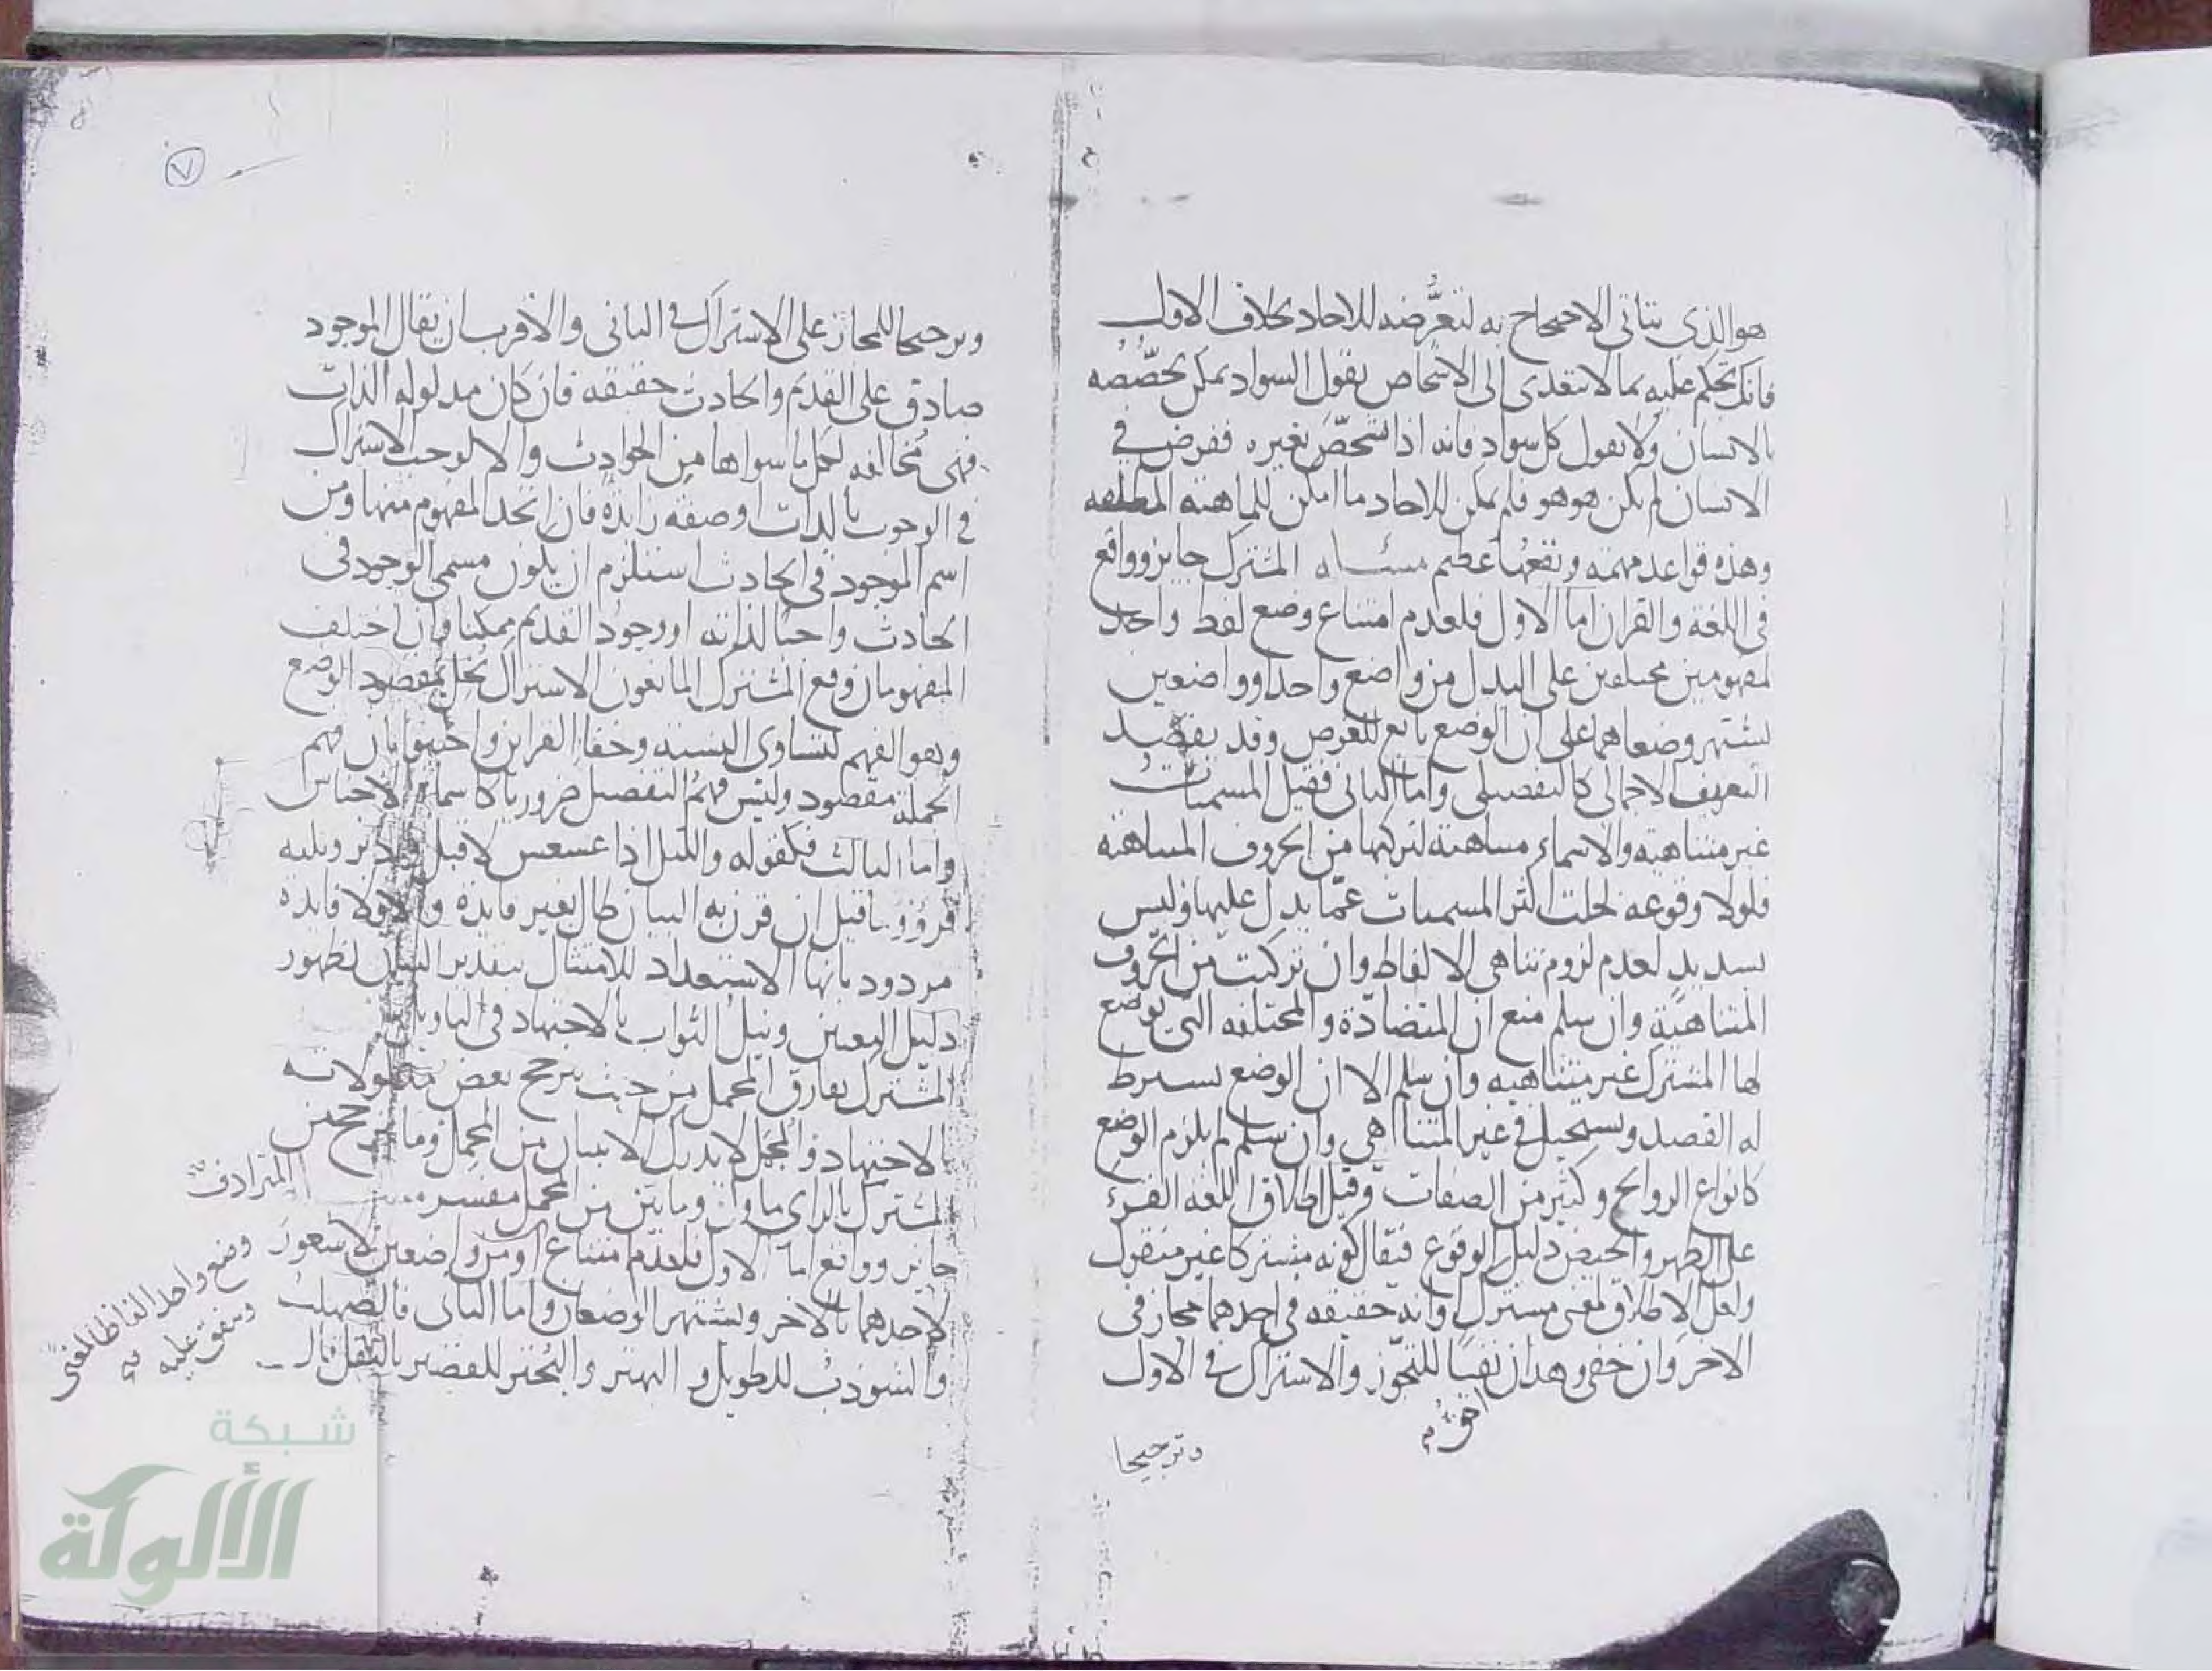 هو الذي يتاتى الاحتجاج به لتعرُّضه للاحاد بخلاف الاول
فانك تحكم عليه بما لا يتعدى الى الاشخاص بقول السواد يمكن تخصّصه
بالانسان ولا يقول كل سواد فانه اذا تشخّص بغيره ففرض في
الانسان لم يكن هو هو فلم يمكن للاحاد ما امكن للماهية المطلقه
وهذه قواعد مهمه ونفعها عظيم مسئله المشترك جايز وواقع
في اللغه والقران اما الاول فلعدم امتناع وضع لفظ واحد
لمفهومين مختلفين على البدل من واضع واحد او واضعين
يشتهر وضعاهما على ان الوضع تابع للغرض وقد يقصد
التعريف الاجمالي كالتفصيلي واما الثاني فقيل المسميات
غير متناهية والاسماء متناهية لتركبها من الحروف المتناهية
فلولا وقوعه لخلت اكثر المسميات عمّا يدل عليها وليس
بسديد لعدم لزوم تناهي الالفاظ وان تركبت من الحروف
المتناهية وان سلم منع ان المتضادّة والمختلفه التي يوضع
لها المشترك غير متناهيه وان سلم الا ان الوضع يشترط
له القصد ويستحيل في غير المتناهي وان سلم لم يلزم الوضع
كانواع الروايح وكثير من الصفات وقيل اطلاق اللغه القرء
على الطهر والحيض دليل الوقوع فيقال كونه مشتركا غير منقول
ولعل الاطلاق لمعنى مشترك او انه حقيقه في احدهما مجاز في
الاخر وان خفي وهذان نفيا للتجوّز والاشتراك في الاول
وترجيحا
وترجيحا للمجاز على الاشتراك في الثاني والاقرب ان يقال الموجود
صادق على القديم والحادث حقيقه فان كان مدلوله الذات
فهي مخالفه لكل ما سواها من الحوادث والا لوجب الاشتراك
في الوجوب بالذات او صفه زايدة فان اتحد المفهوم منها ومن
اسم الموجود في الحادث استلزم ان يكون مسمى الوجود في
الحادث واجبا لذاته او وجود القديم ممكنا وان اختلف
المفهومان وقع المشترك المانعون الاشتراك يخل بمقصود الوضع
وهو الفهم لتساوي النسبه وخفا القراين واجيب بان فهم
الجملة مقصود وليس فهم التفصيل ضروريا كاسماء الاجناس
واما الثالث فكقوله والليل اذا عسعس لاقبل وادبر وثلثه
قروء وما قيل ان قرن به البيان طال بغير فايدة والا فلا فايده
مردود بانها الاستعداد للامتثال بتقدير البيان لظهور
دليل التعيين ونيل الثواب بالاجتهاد في التاويل
المشترك يفارق المجمل من حيث يترجح بعض مدلولاته
بالاجتهاد والمجمل لا يدرك الا ببيان من المجمل وما ترجح من
المشترك بالراي ماول وما بين من المجمل مفسر
المترادف
جايز وواقع اما الاول فلعدم امتناع او من واضعين لا يشعر
وضع واحد الفاظا لمعنى
ويتفق عليه
لاحدهما بالاخر ويشتهر الوضعان واما الثاني فالصهلب
والشوذب للطويل والبهتر والبحتر للقصير بالنقل قال
٧
شبكة
الألوكة